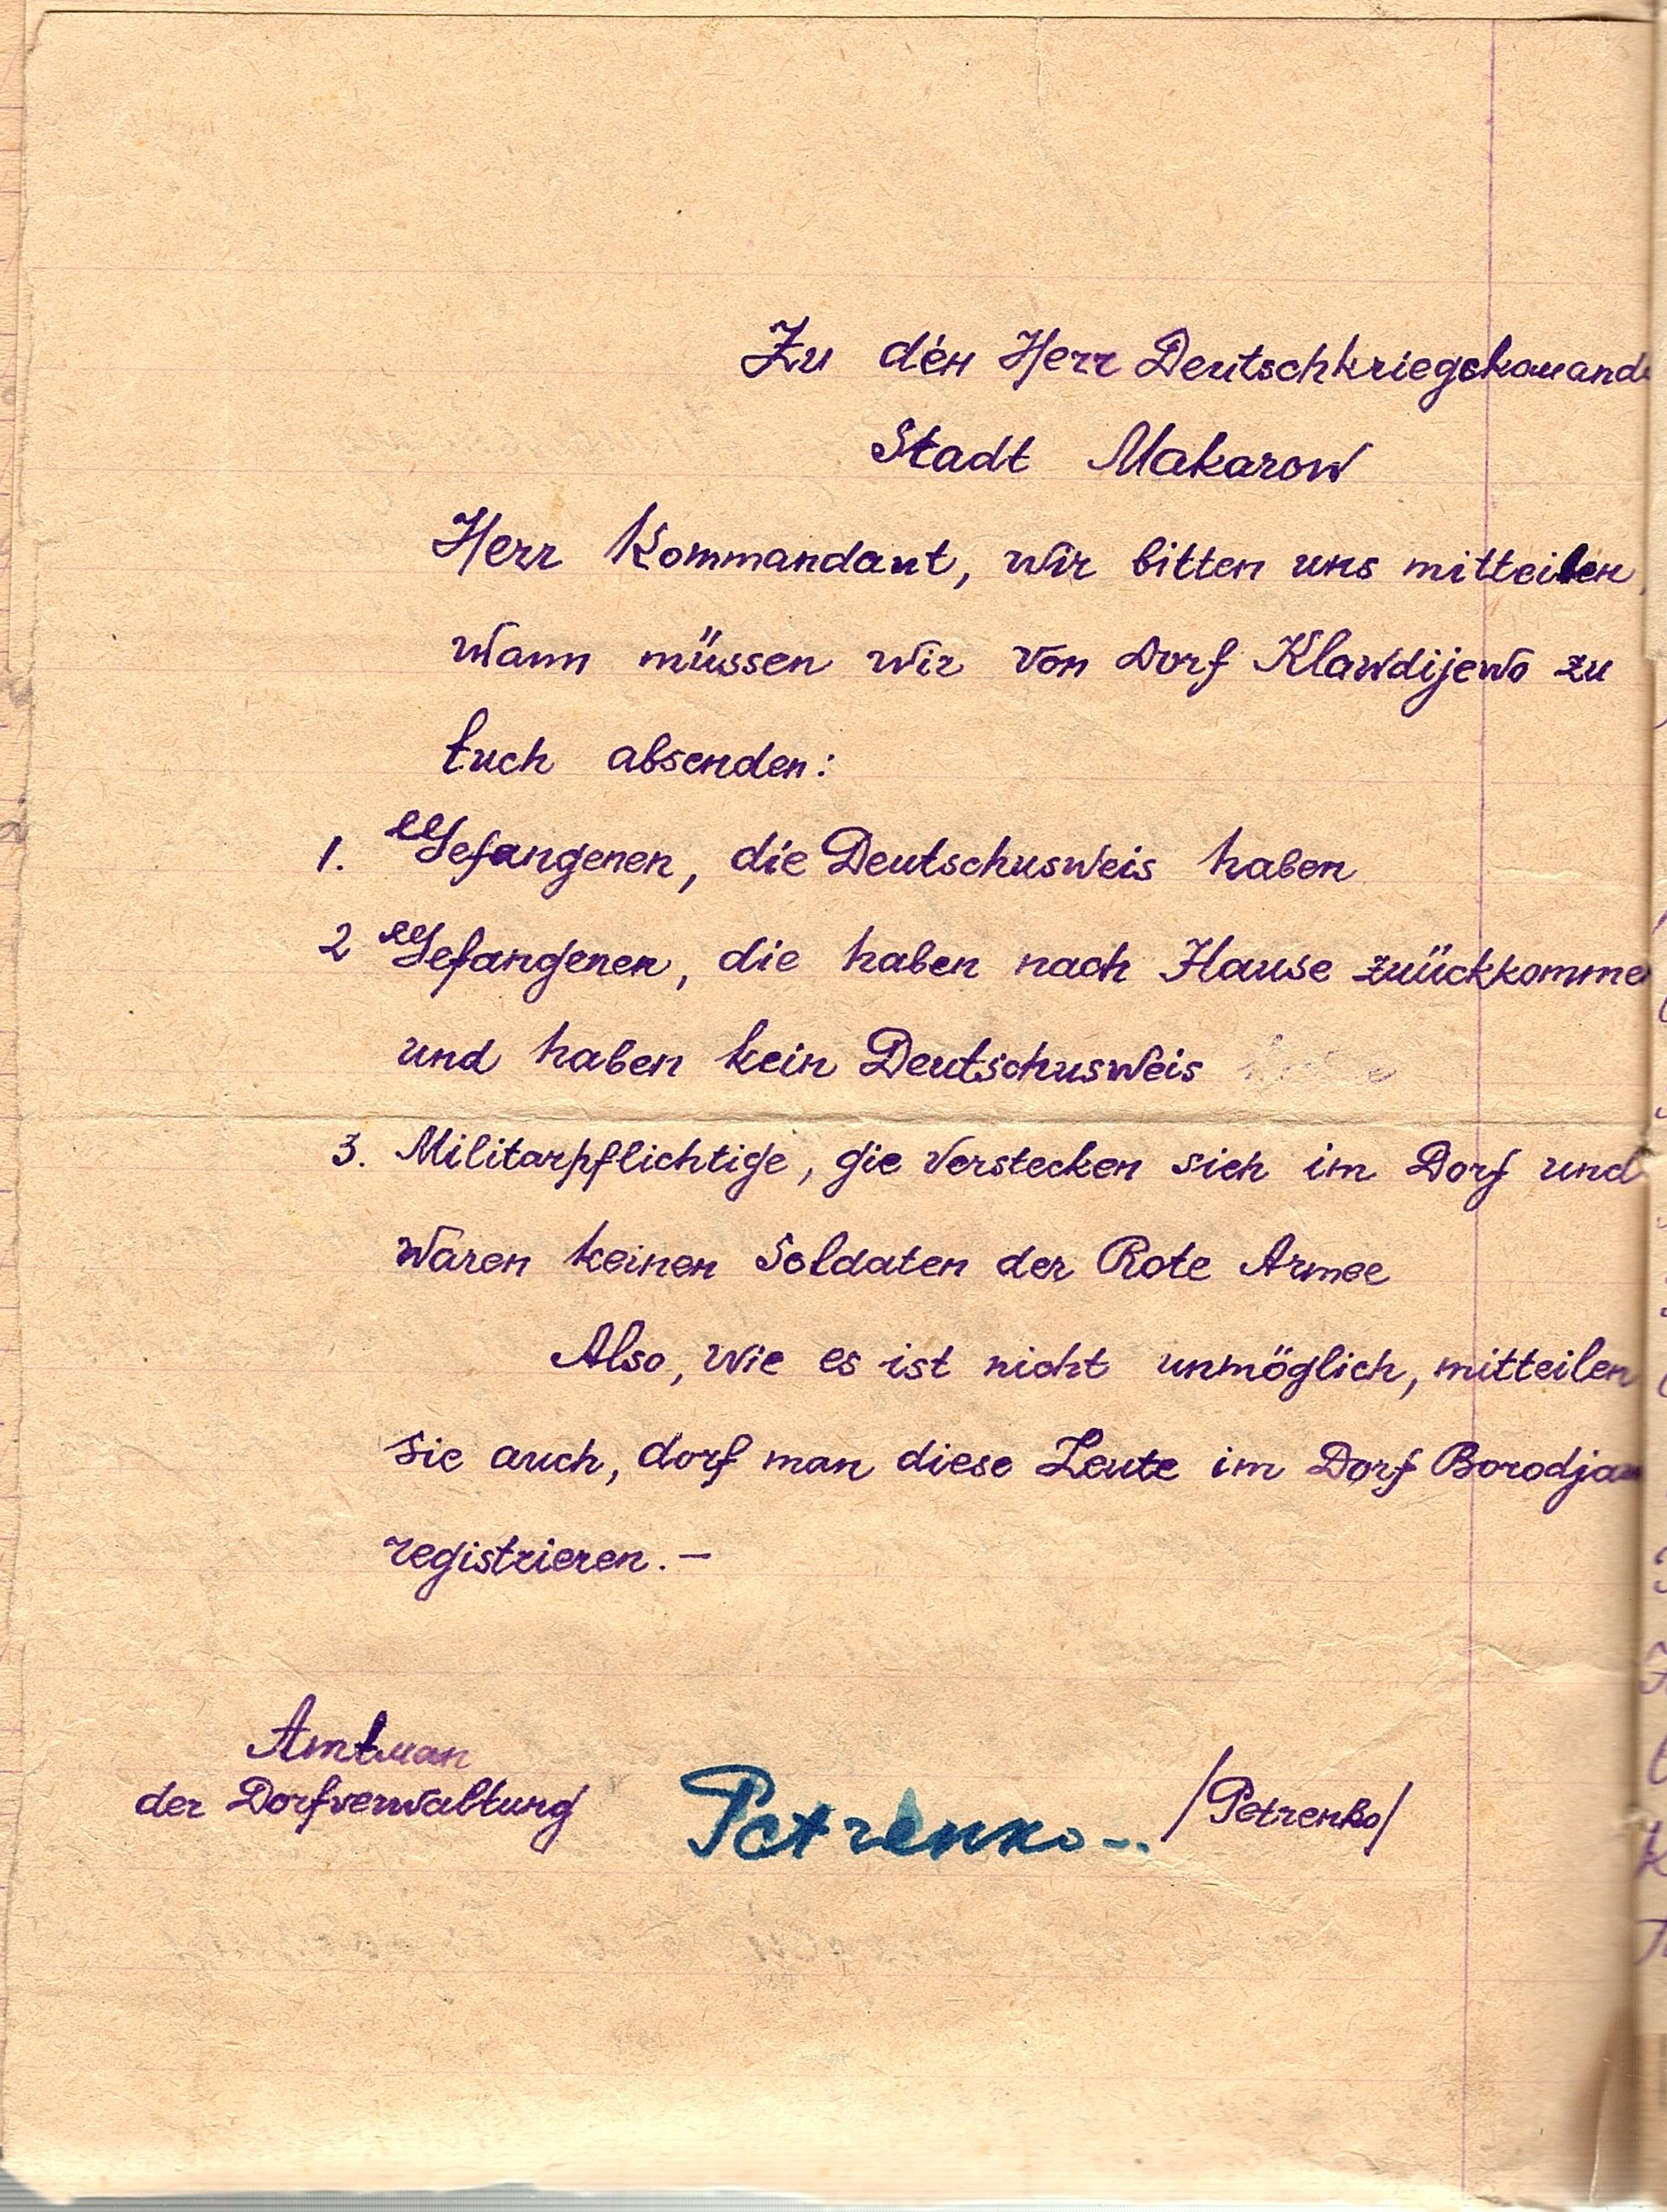 Zu den Herr Deutschkriegskomand
Stadt Makarow
Herr Kommandant, wir bitten uns mitteilen,
wann müssen wir von Dorf Klawdijewo zu
Euch absenden:
1. Gefangenen, die Deutschusweis haben
2 Gefangenen, die haben nach Hause zuückkomme
und haben kein Deutschusweis
3. Militarpflichtige, die verstecken sich im Dorf und
waren keinen Soldaten der Rote Armee
Also, wie es ist nicht unmöglich, mitteilen
sie auch, dorf man diese Leute im Dorf Borodjan
registrieren. —
Amtman
der Dorfverwaltung Petrenko /Petrenko/